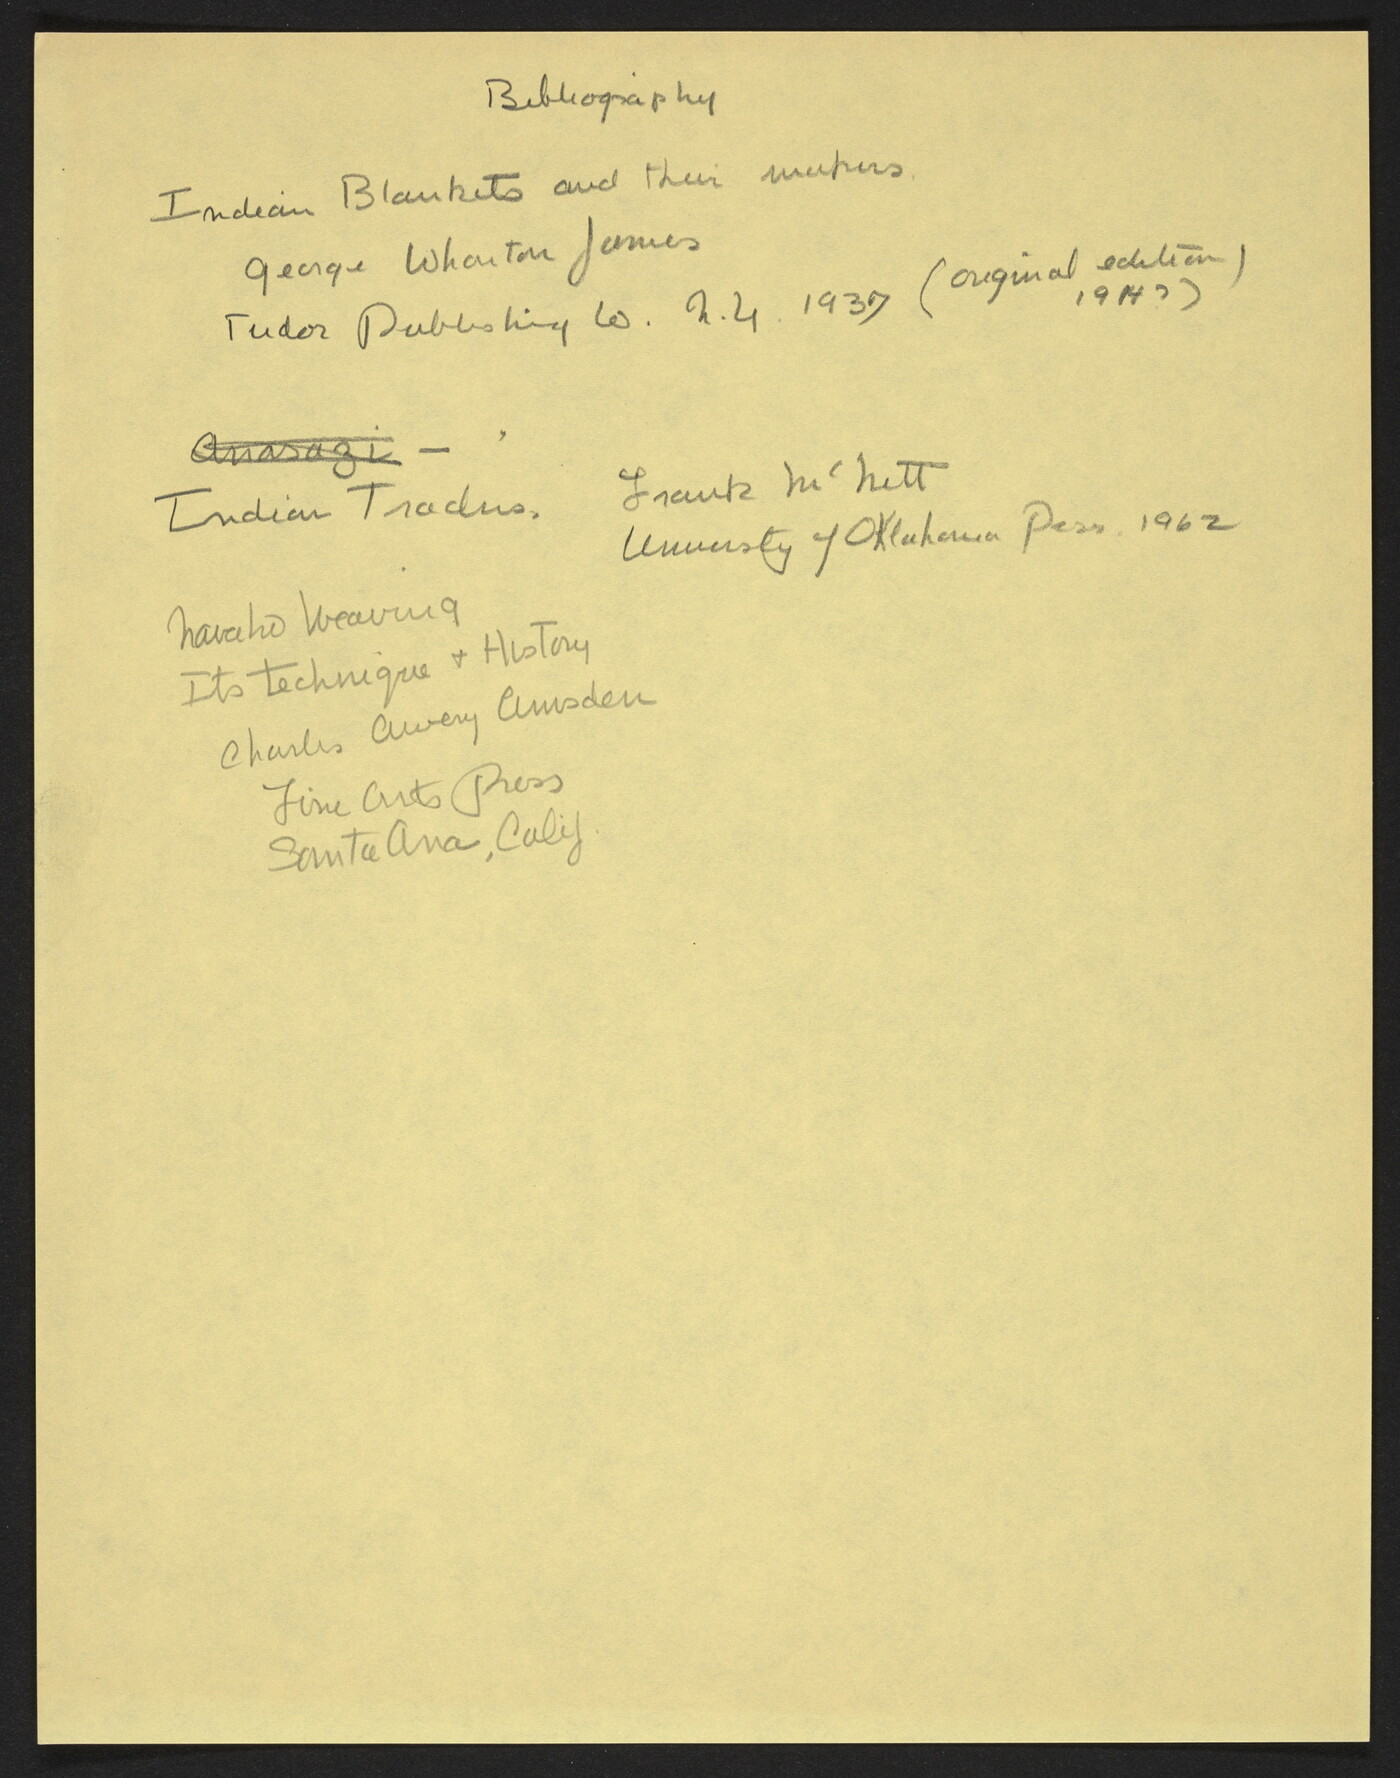 Bibliography
Indian Blankets and their makers.
George Wharton James
Tudor Publishing Co. N.Y. 1937 (original edition)
1914?)
Anasazi -
Indian Traders. Frank Mc Nett
University of Oklahoma Press. 1962
Navaho Weaving
Its technique + History
Charles Avery Amsden
Fine Arts Press
Santa Ana, Calif.